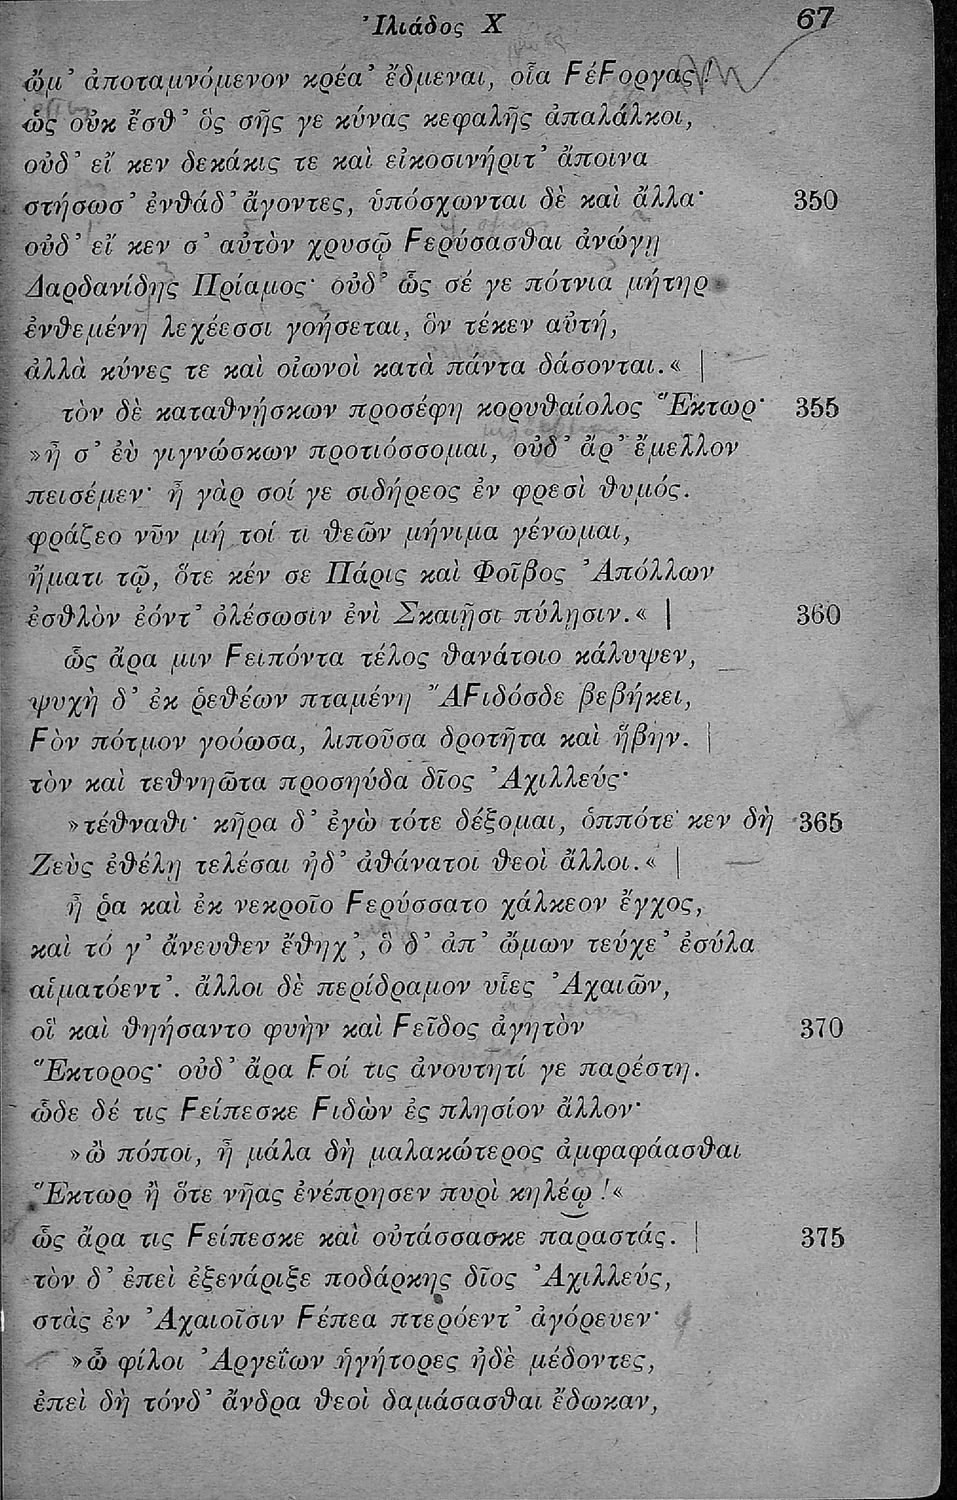 Ἰλιάδος Χ 67
ὤμ' ἀποταμνόμενον κρέα' ἔδμεναι, οἷα ϝέϝοργας!
ὡς οὐκ ἔσθ' ὃς σῆς γε κύνας κεφαλῆς ἀπαλάλκοι,
οὐδ' εἴ κεν δεκάκις τε καὶ εἰκοσινήριτ' ἄποινα
στήσωσ' ἐνθάδ' ἄγοντες, ὑπόσχωνται δὲ καὶ ἄλλα· 350
οὐδ' εἴ κεν σ' αὐτὸν χρυσῷ ϝερύσασθαι ἀνώγῃ
Δαρδανίδης Πρίαμος· οὐδ' ὧς σέ γε πότνια μήτηρ
ἐνθεμένη λεχέεσσι γοήσεται, ὃν τέκεν αὐτή,
ἀλλὰ κύνες τε καὶ οἰωνοὶ κατὰ πάντα δάσονται.«
τὸν δὲ καταθνήσκων προσέφη κορυθαίολος Ἕκτωρ· 355
»ἦ σ' ἐὺ γιγνώσκων προτιόσσομαι, οὐδ' ἄρ' ἔμελλον
πεισέμεν· ἦ γὰρ σοί γε σιδήρεος ἐν φρεσὶ θυμός.
φράζεο νῦν μή τοί τι θεῶν μήνιμα γένωμαι,
ἤματι τῷ, ὅτε κέν σε Πάρις καὶ Φοῖβος Ἀπόλλων
ἐσθλὸν ἐόντ' ὀλέσωσιν ἐνὶ Σκαιῇσι πύλῃσιν.« 360
ὣς ἄρα μιν ϝειπόντα τέλος θανάτοιο κάλυψεν,
ψυχὴ δ' ἐκ ῥεθέων πταμένη Ἄϝιδόσδε βεβήκει,
ϝὸν πότμον γοόωσα, λιποῦσα δροτῆτα καὶ ἥβην.
τὸν καὶ τεθνηῶτα προσηύδα δῖος Ἀχιλλεύς·
»τέθναθι· κῆρα δ' ἐγὼ τότε δέξομαι, ὁππότε κεν δὴ 365
Ζεὺς ἐθέλῃ τελέσαι ἠδ' ἀθάνατοι θεοὶ ἄλλοι.«
ἦ ῥα καὶ ἐκ νεκροῖο ϝερύσσατο χάλκεον ἔγχος,
καὶ τό γ' ἄνευθεν ἔθηχ', ὃ δ' ἀπ' ὤμων τεύχε' ἐσύλα
αἱματόεντ'. ἄλλοι δὲ περίδραμον υἷες Ἀχαιῶν,
οἳ καὶ θηήσαντο φυὴν καὶ ϝεῖδος ἀγητὸν 370
Ἕκτορος· οὐδ' ἄρα ϝοί τις ἀνουτητί γε παρέστη.
ὧδε δέ τις ϝείπεσκε ϝιδὼν ἐς πλησίον ἄλλον·
»ὢ πόποι, ἦ μάλα δὴ μαλακώτερος ἀμφαφάασθαι
Ἕκτωρ ἢ ὅτε νῆας ἐνέπρησεν πυρὶ κηλέῳ!«
ὣς ἄρα τις ϝείπεσκε καὶ οὐτάσσασκε παραστάς. 375
τὸν δ' ἐπεὶ ἐξενάριξε ποδάρκης δῖος Ἀχιλλεύς,
στὰς ἐν Ἀχαιοῖσιν ϝέπεα πτερόεντ' ἀγόρευεν·
»ὦ φίλοι Ἀργεΐων ἡγήτορες ἠδὲ μέδοντες,
ἐπεὶ δὴ τόνδ' ἄνδρα θεοὶ δαμάσασθαι ἔδωκαν,